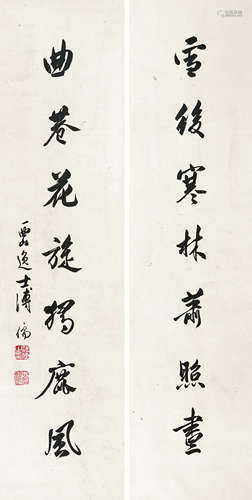 雪後寒林蕭照畫
曲巷花旋獨鹿風
西山逸士溥儒